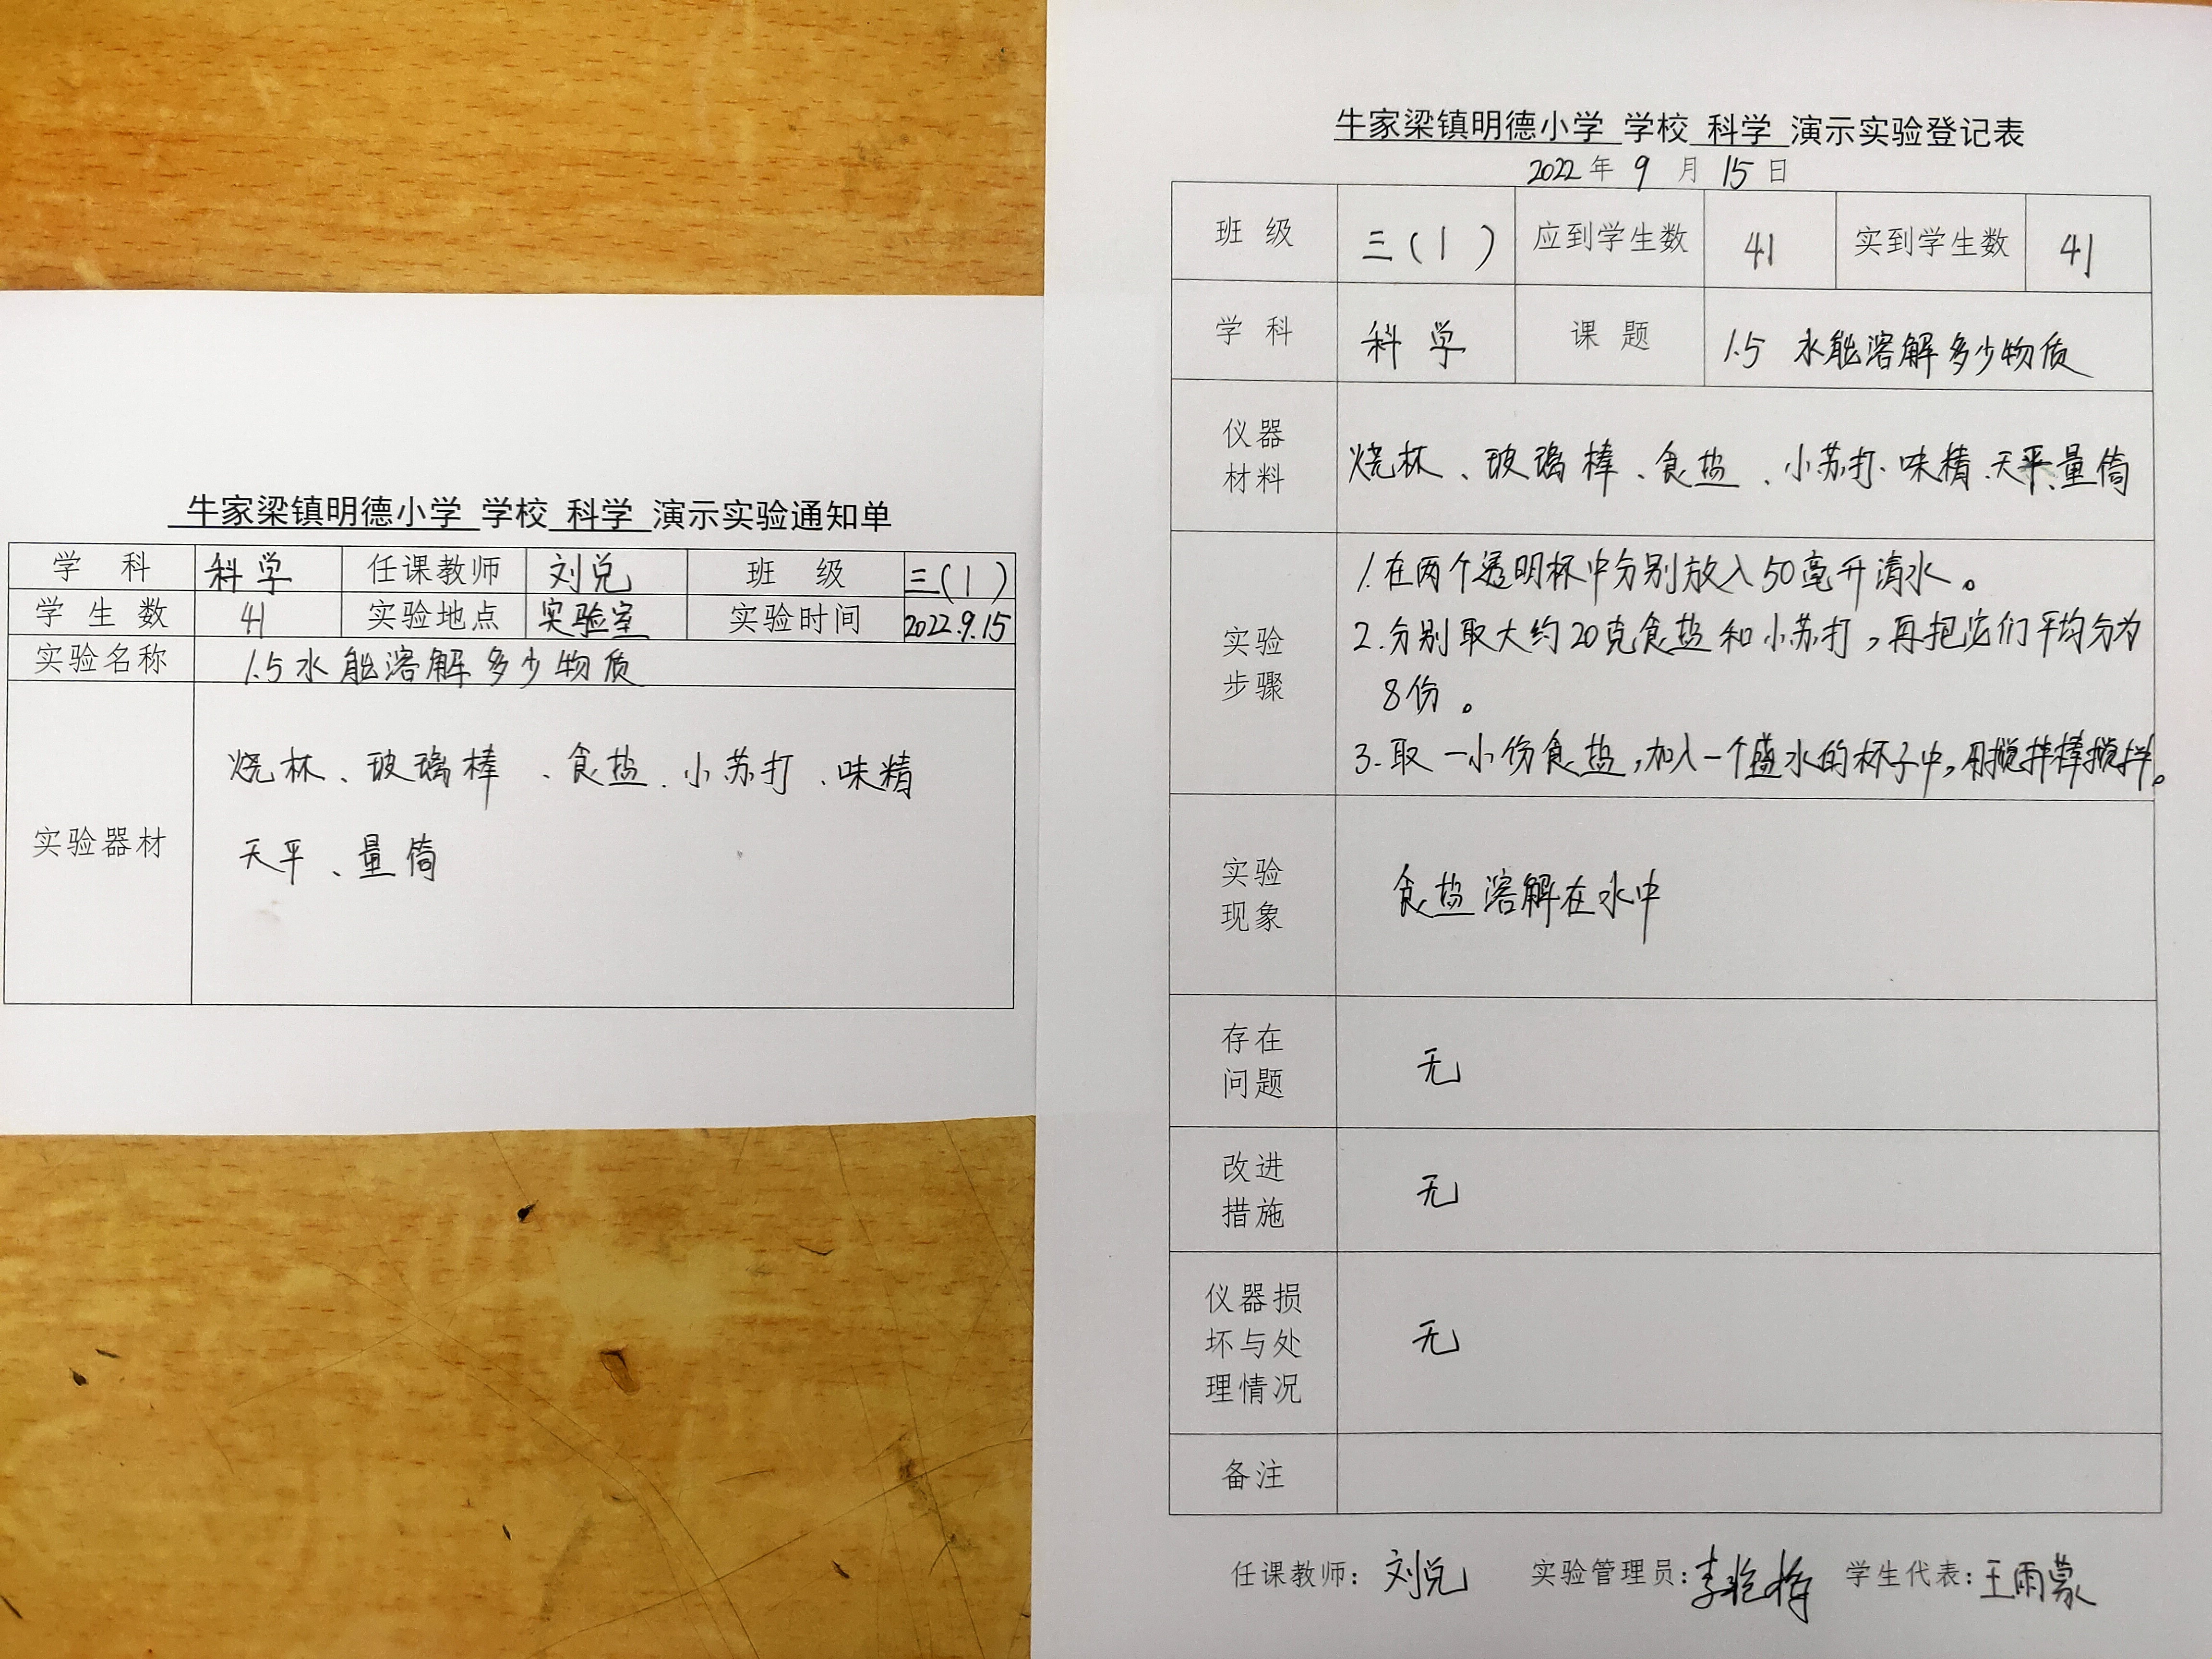 牛家梁镇明德小学 学校 科学 演示实验通知单
学 科 科学 任课教师 刘兑 班 级 三(1)
学生数 41 实验地点 实验室 实验时间 2022.9.15
实验名称 1.5水能溶解多少物质
实验器材 烧杯、玻璃棒、食盐、小苏打、味精
天平、量筒
牛家梁镇明德小学 学校 科学 演示实验登记表
2022年 9 月 15 日
班 级 三(1) 应到学生数 41 实到学生数 41
学 科 科学 课 题 1.5 水能溶解多少物质
仪器
材料
烧杯、玻璃棒、食盐、小苏打、味精、天平、量筒
实验
步骤
1.在两个透明杯中分别放入50毫升清水。
2.分别取大约20克食盐和小苏打,再把它们平均分为
8份。
3.取一小份食盐,加入一个盛水的杯子中,用搅拌棒搅拌。
实验
现象
食盐溶解在水中
存在
问题
无
改进
措施
无
仪器损
坏与处
理情况
无
备注
任课教师:刘兑 实验管理员:李 学生代表:王雨蒙